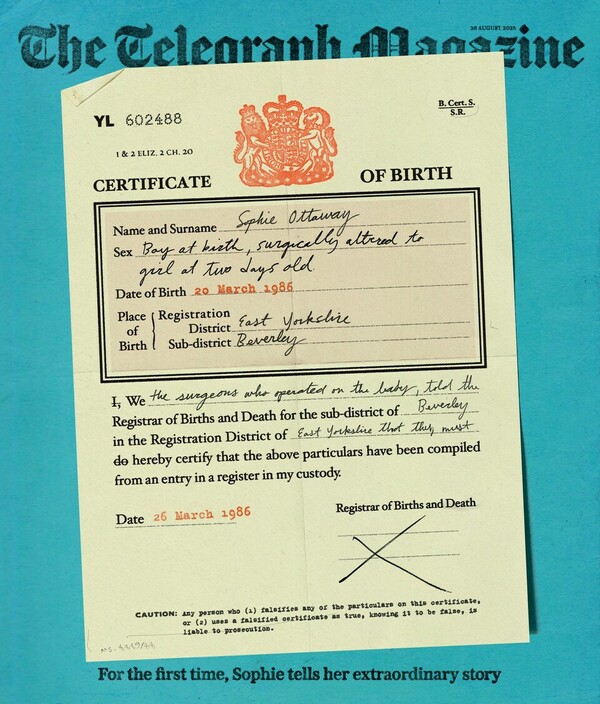 26 AUGUST 2023
The Telegraph Magazine
B. Cert. S.
S.R.
YL 602488
1 & 2 ELIZ. 2 CH. 20
CERTIFICATE OF BIRTH
Name and Surname Sophie Ottaway
Sex Boy at birth, surgically altered to
girl at two days old.
Date of Birth 20 March 1986
Place of Birth { Registration District East Yorkshire
Sub-district Beverley
I, We the surgeons who operated on the baby, told the
Registrar of Births and Death for the sub-district of Beverley
in the Registration District of East Yorkshire that they must
do hereby certify that the above particulars have been compiled
from an entry in a register in my custody.
Date 26 March 1986
Registrar of Births and Death
CAUTION: Any person who (1) falsifies any of the particulars on this certificate,
or (2) uses a falsified certificate as true, knowing it to be false, is
liable to prosecution.
For the first time, Sophie tells her extraordinary story